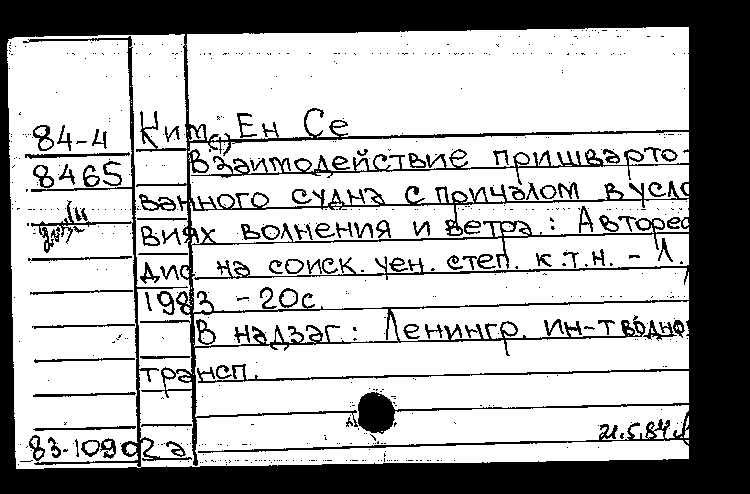 84-4 Ким, Ен Се
8465 Взаимодействие пришварто-
ванного судна с причалом в усло
виях волнения и ветра.: Авторе
дис на соиск. уен. степ. к.т.н. - Л.,
1983 - 20с.
В надзаг.: Ленингр. ин-т водно
трансп.
83-10902 а
21.5.84